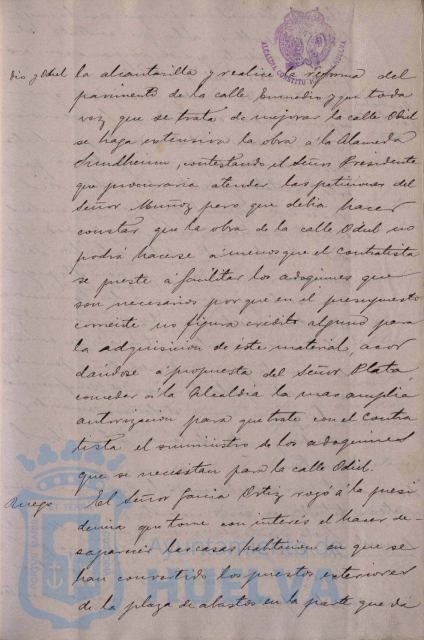 ALCALDIA CONSTITU HUELVA
dio y Odiel la alcantarilla y realice la reforma del
pavimento de la calle Enmedio y que toda
vez que se trata de mejorar la calle Odiel
se haga extensiva la obra a la Alameda
Sundheim, contestando el Señor Presidente
que procuraria atender las peticiones del
Señor Muñoz pero que debia hacer
constar que la obra de la calle Odiel no
podrá hacerse a menos que el contratista
se preste á facilitar los adoquines que
son necesarios por que en el presupuesto
corriente no figura crédito alguno para
la adquisicion de este material, acor
dándose á propuesta del Señor Plata
conceder á la Alcaldia la mas amplia
autorizacion para que trate con el contra
tista el suministro de los adoquines
que se necesitan para la calle Odiel.
Ruego. El Señor Garcia Ortiz rogó á la presi
dencia que tome con interés el hacer de-
saparecer las casas habitacion en que se
han convertido los puestos exteriores
de la plaza de abastos en la parte que dá
Ayuntamiento de
HUELVA